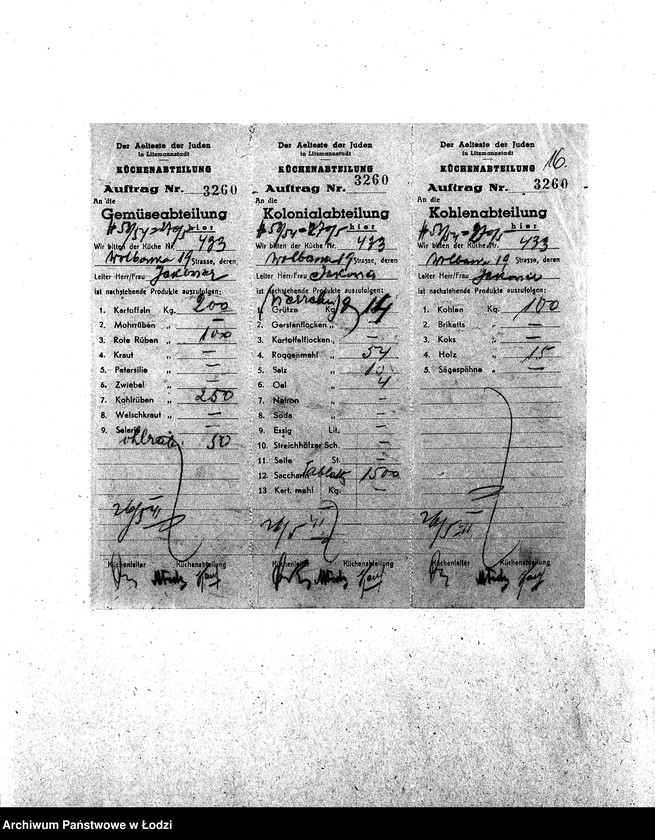 Der Aelteste der Juden
in Litzmannstadt
KÜCHENABTEILUNG
Auftrag Nr. 3260
An die
Gemüseabteilung
hier
Wir bitten der Küche Nr. 433
Wolborska 19 Strasse, deren
Leiter Herr/Frau
ist nachstehende Produkte auszufolgen:
1. Kartoffeln Kg. 200
2. Mohrrüben „ —
3. Rote Rüben „ 100
4. Kraut „ —
5. Petersilie „ —
6. Zwiebel „ —
7. Kohlrüben „ 250
8. Welschkraut „ —
9. Selerie
50
26/5 41
Küchenleiter Küchenabteilung
Der Aelteste der Juden
in Litzmannstadt
KÜCHENABTEILUNG
Auftrag Nr. 3260
An die
Kolonialabteilung
hier
Wir bitten der Küche Nr. 433
Wolborska 19 Strasse, deren
Leiter Herr/Frau
ist nachstehende Produkte auszufolgen:
1. Grütze Kg.
2. Gerstenflocken „
3. Kartoffelflocken „ —
4. Roggenmehl „ 54
5. Salz „ 10
6. Oel „ 4
7. Natron „ —
8. Soda „ —
9. Essig Lit. —
10. Streichhölzer Sch. —
11. Seife St. —
12. Saccharin Tabletk 1500
13 Kart. mehl Kg. —
26/5 41
Küchenleiter Küchenabteilung
16
Der Aelteste der Juden
in Litzmannstadt
KÜCHENABTEILUNG
Auftrag Nr. 3260
An die
Kohlenabteilung
hier
Wir bitten der Küche Nr. 433
Wolborska 19 Strasse, deren
Leiter Herr/Frau
ist nachstehende Produkte auszufolgen:
1. Kohlen Kg. 100
2. Briketts „ —
3. Koks „ —
4. Holz „ 15
5. Sägespähne „ —
26/5 41
Küchenleiter Küchenabteilung
Archiwum Państwowe w Łodzi